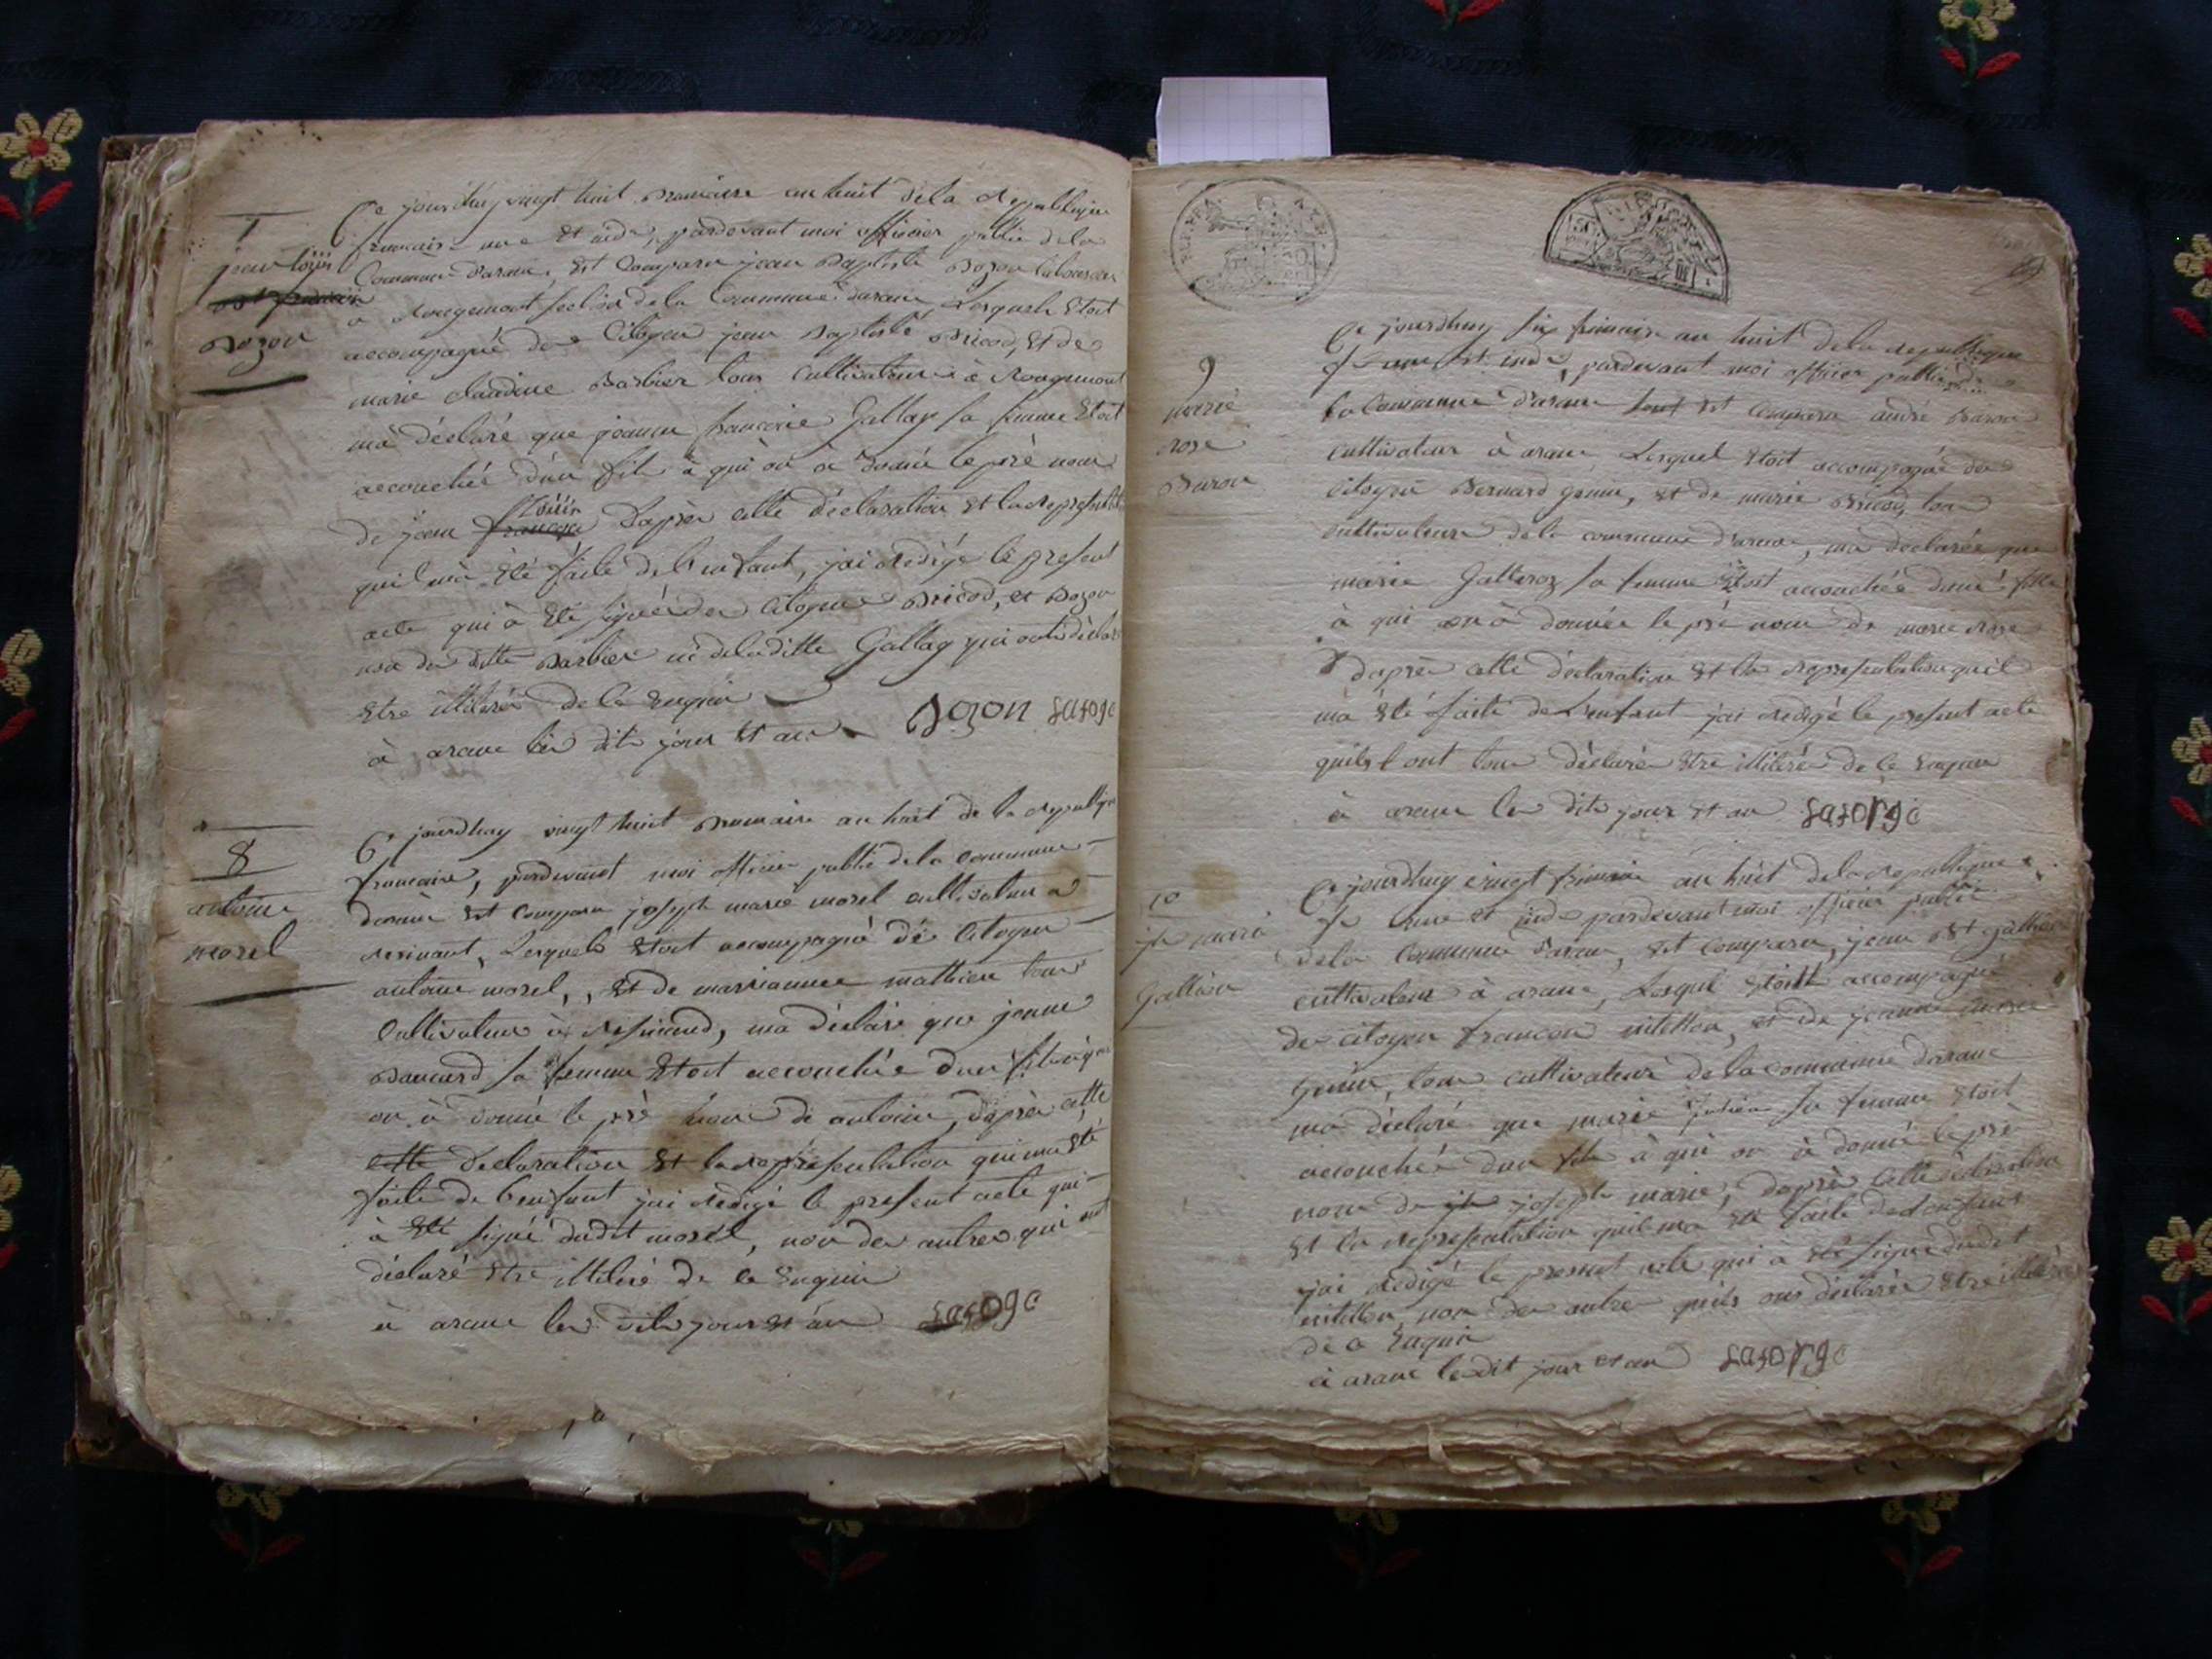 7
jean loüis
Bozon
Ce jourdhuy vingt huit Brumaire an huit de la Republique
francaise une et ind, pardevant moi officier public de la
Commune d'arane, Est Comparu jean Baptiste Bozon laboureur
a Rougemont section de la Commune darane Lesquels Etoit
accompagné de Citoyen jean Baptiste Bricod, Et de
marie claudine Barbier tous Cultivateurs à Rougemont
mà déclaré que jeanne francoise Gallay sa femme Etoit
accouchée d'un fils à qui on à donné le pré nom
de jean loüis francois D'après cette déclaration Et la Represent
quil mà Eté faite de l'enfant, jai Redigé le present
acte qui à Eté signé des Citoyens Bricod, et Bozon
non de ditte Barbier ni de laditte Gallay qui ont déclaré
Etre illitérés de ce Enquis
à arane les dits jour Et an Bozon Lasorge
8
antoine
morel
Ce jourdhuy vingt huit Brumaire an huit de la Republique
francaise, pardevant moi officier public de la Commune
darane Est Comparu joseph marie morel cultivateur a
Resinant, Lesquels Etoit accompagné de Citoyen
antoine morel, , Et de marianne mathieu tous
Cultivateurs à Resinand, ma déclaré que jeanne
sa femme Etoit accouchée d'un fils à qui
on à donné le pré nom de antoine, d'après cette
cette declaration Et la representation qui ma Eté
faite de l'enfant jai Redigé le present acte qui
à Eté signé dudit morel, non des autres qui ont
déclaré Etre illitéré de ce Enquis
à arane les dits jour Et an Lasorge
9
marie
Rose
Baron
Ce jourdhuy six frimaire an huit de la Republique
f une Et ind, pardevant moi officier public de
la Commune d'arane Est Comparu andré Baron
cultivateur à arane Lesquel Etoit accompagné de
citoyen Bernard genin, Et de marie Bricod, tous
cultivateurs de la commune d'arane, mà declarée que
marie Galleroz sa femme Etoit accouchée dune fille
à qui on à donnée le pré nom de marie Rose
D'après cette déclaration Et la Representation quil
mà Eté faite de L'enfant jai Redigé le present acte
quils ont tous déclarés Etre illitéré de ce Enquis
à arane les dits jour Et an Lasorge
10
jh marie
Gallion
Ce jourdhuy vingt frimaire an huit de la Republique
f une et ind pardevant moi officier public
de la Commune darane, Est Comparu, jean Bt Gallion
cultivateur à arane, Lesquel Etoit accompagné
de citoyen francois mitellon, et de jeanne marie
genin, tous cultivateurs de la commune darane
ma déclaré que marie sa femme Etoit
accouchée d'un fils à qui on à donné le pré
nom de jh joseph marie, d'après cette déclaration
Et la Representation quil ma Eté faite de L'enfant
jai Redigé le present acte qui à Eté signé dudit
mitellon, non des autres quils ons déclarés Etre illitérés
de ce Enquis
à arane les dit jour et an Lasorge